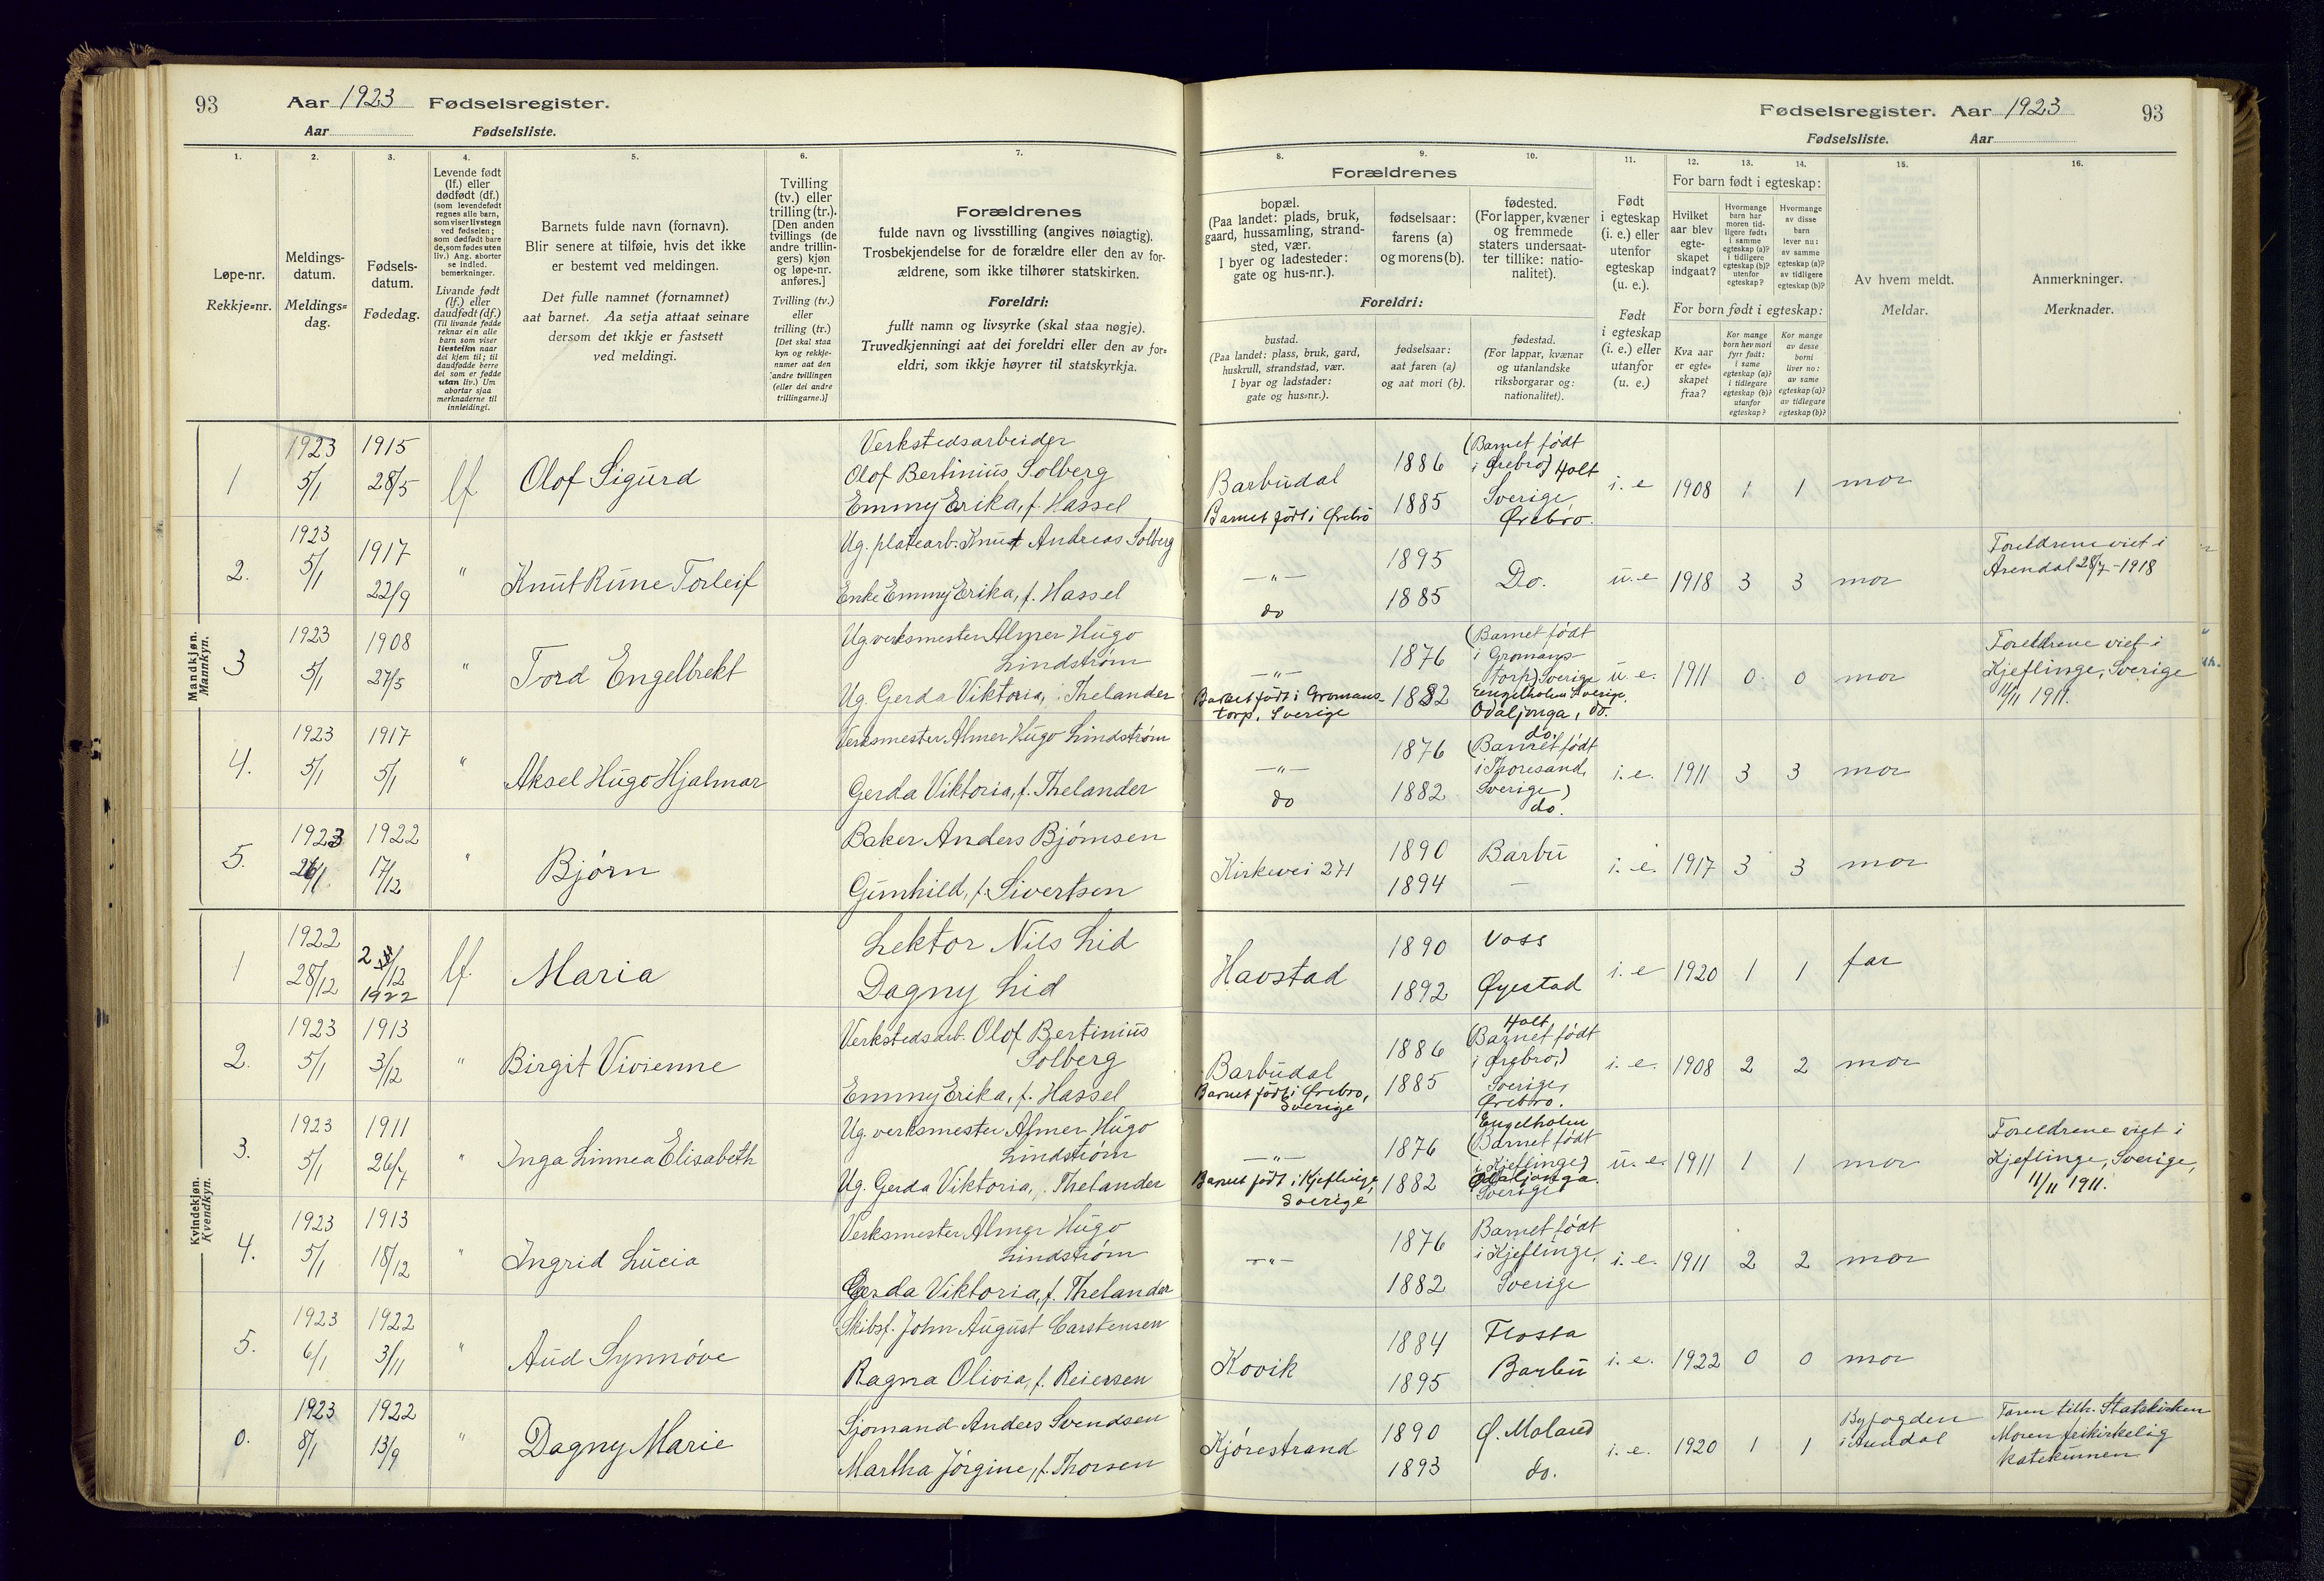 93 Aar 1923 Fødselsregister.
Aar Fødselsliste.
1. 2. 3. 4. 5. 6. 7.
Løpe-nr.
Rekkje=nr.
Meldings-
datum.
Meldings=
dag.
Fødsels-
datum.
Fødedag.
Levende født
(lf.) eller
dødfødt (df.)
(som levendefødt
regnes alle barn,
som viser livstegn
ved fødselen;
som dødfødt bare
de, som fødes uten
liv.) Ang. aborter
se indled.
bemerkninger.
Livande født
(lf.) eller
daudfødt (df.)
(Til livande fødde
reknar ein alle
barn som viser
livsteikn naar
dei kjem til; til
daudfødde berre
dei som er fødde
utan liv.) Um
abortar sjaa
merknaderne til
innleidingi.
Barnets fulde navn (fornavn).
Blir senere at tilføie, hvis det ikke
er bestemt ved meldingen.
Det fulle namnet (fornamnet)
aat barnet. Aa setja attaat seinare
dersom det ikkje er fastsett
ved meldingi.
Tvilling
(tv.) eller
trilling (tr.).
[Den anden
tvillings (de
andre trillin-
gers) kjøn
og løpe-nr.
anføres.]
Tvilling (tv.)
eller
trilling (tr.)
[Det skal staa
kyn og rekkje-
numer aat den
andre tvillingen
(eller dei andre
trillingarne.)]
Forældrenes
fulde navn og livsstilling (angives nøiagtig).
Trosbekjendelse for de forældre eller den av for-
ældrene, som ikke tilhører statskirken.
Foreldri:
fullt namn og livsyrke (skal staa nøgje).
Truvedkjenningi aat dei foreldri eller den av for=
eldri, som ikkje høyrer til statskyrkja.
Mandkjøn.
Mannkyn.
1 1923 5/1 1915 28/5 lf Olof Sigurd
Verkstedsarbeider
Olof Bertinius Solberg
Emmy Erika, f. Hassel
2. 1923 5/1 1917 22/9 " Knut Rune Torleif
Ug. platearb. Knut Andreas Solberg
Enke Emmy Erika, f. Hassel
3 1923 5/1 1908 27/5 " Tord Engelbrekt
Ug verksmester Almer Hugo
Lindstrøm
Ug. Gerda Viktoria, Thelander
4. 1923 5/1 1917 5/1 " Aksel Hugo Hjalmar
Verksmester Almer Hugo Lindstrøm
Gerda Viktoria, f. Thelander
5. 1923 26/1 1922 17/12 " Bjørn
Baker Anders Bjørnsen
Gunhild, f. Sivertsen
Kvindekjøn.
Kvendkyn.
1 1922 28/12 2 /12 1922 lf. Maria
Lektor Nils Lid
Dagny Lid
2. 1923 5/1 1913 3/12 " Birgit Vivienne
Verkstedsarb. Olof Bertinius
Solberg
Emmy Erika, f. Hassel
3. 1923 5/1 1911 26/7 " Inga Linnea Elisabeth
Ug. verksmester Almer Hugo
Lindstrøm
Ug. Gerda Viktoria, Thelander
4. 1923 5/1 1913 18/12 " Ingrid Lucia
Verksmester Almer Hugo
Lindstrøm
Gerda Viktoria, f. Thelander
5. 1923 6/1 1922 3/11 " Aud Synnøve
Skibsf. John August Carstensen
Ragna Olivia, f. Reiersen
0. 1923 8/1 1922 13/9 " Dagny Marie
Sjømand Anders Svendsen
Martha Jørgine, f. Thorsen
Fødselsregister. Aar 1923 93
Fødselsliste. Aar
8. 9. 10. 11. 12. 13. 14. 15. 16.
Forældrenes
bopæl.
(Paa landet: plads, bruk,
gaard, hussamling, strand-
sted, vær.
I byer og ladesteder:
gate og hus-nr.).
fødselsaar:
farens (a)
og morens (b).
fødested.
(For lapper, kvæner
og fremmede
staters undersaat-
ter tillike: natio-
nalitet).
Foreldri:
bustad.
(Paa landet: plass, bruk, gard,
huskrull, strandstad, vær.
I byar og ladstader:
gate og hus=nr.).
fødselsaar:
aat faren (a)
og aat mori (b).
fødestad.
(For lappar, kvænar
og utanlandske
riksborgarar og:
nationalitet).
Født
i egteskap
(i. e.) eller
utenfor
egteskap
(u. e.).
Født
i egteskap
(i. e.) eller
utanfor
(u. e.)
For barn født i egteskap:
Hvilket
aar blev
egte-
skapet
indgaat?
Hvormange
barn har
moren tid-
ligere født:
i samme
egteskap (a)?
i tidligere
egteskap (b)?
utenfor
egteskap?
Hvormange
av disse
barn
lever nu:
av samme
egteskap (a)?
av tidligere
egteskap (b)?
For born født i egteskap:
Kva aar
er egte=
skapet
fraa?
Kor mange
born hev mori
fyrr født:
i same
egteskap (a)?
i tidlegare
egteskap (b)?
utanfor
egteskap?
Kor mange
av desse
borni
liver no:
av same
egteskap (a)?
av tidlegare
egteskap (b)?
Av hvem meldt.
Meldar.
Anmerkninger.
Merknader.
Barbudal
Barnet født i Ørebro
1886
1885
(Barnet født
i Ørebro) Holt
Sverige
Ørebro.
i. e 1908 1 1 mor
—"—
do
1895
1885
Do.
u. e 1918 3 3 mor
Foreldrene viet i
Arendal 28/7 - 1918
—"—
Barnet født i Gromans-
torp, Sverige
1876
1882
(Barnet født
i Gromans-
torp) Sverige
Engelholm Sverige.
Odaljonga, do.
u. e. 1911 0 0 mor
Foreldrene viet i
Kjeflinge, Sverige
11/11 1911.
—"—
do
1876
1882
do.
(Barnet født
i Thoresand,
Sverige)
do.
i. e. 1911 3 3 mor
Kirkevei 271
1890
1894
Barbu
—
i. e. 1917 3 3 mor
Havstad
1890
1892
Voss
Øyestad
i. e 1920 1 1 far
Barbudal
Barnet født i Ørebro,
Sverige
1886
1885
Holt
(Barnet født
i Ørebro,)
Sverige,
Ørebro.
i. e. 1908 2 2 mor
—"—
Barnet født i Kjeflinge,
Sverige
1876
1882
Engelholm
(Barnet født
i Kjeflinge)
Odaljonga.
Sverige
u. e. 1911 1 1 mor
Foreldrene viet i
Kjeflinge, Sverige,
11/11 1911.
—"—
1876
1882
Barnet født
i Kjeflinge,
Sverige
i. e. 1911 2 2 mor
Kovik
1884
1895
Flosta
Barbu
i. e. 1922 0 0 mor
Kjørestrand
1890
1893
Ø. Moland
do.
i. e. 1920 1 1
Byfogden
i Arendal
Faren tilh. Statskirken
Moren frikirkelig
katekumen